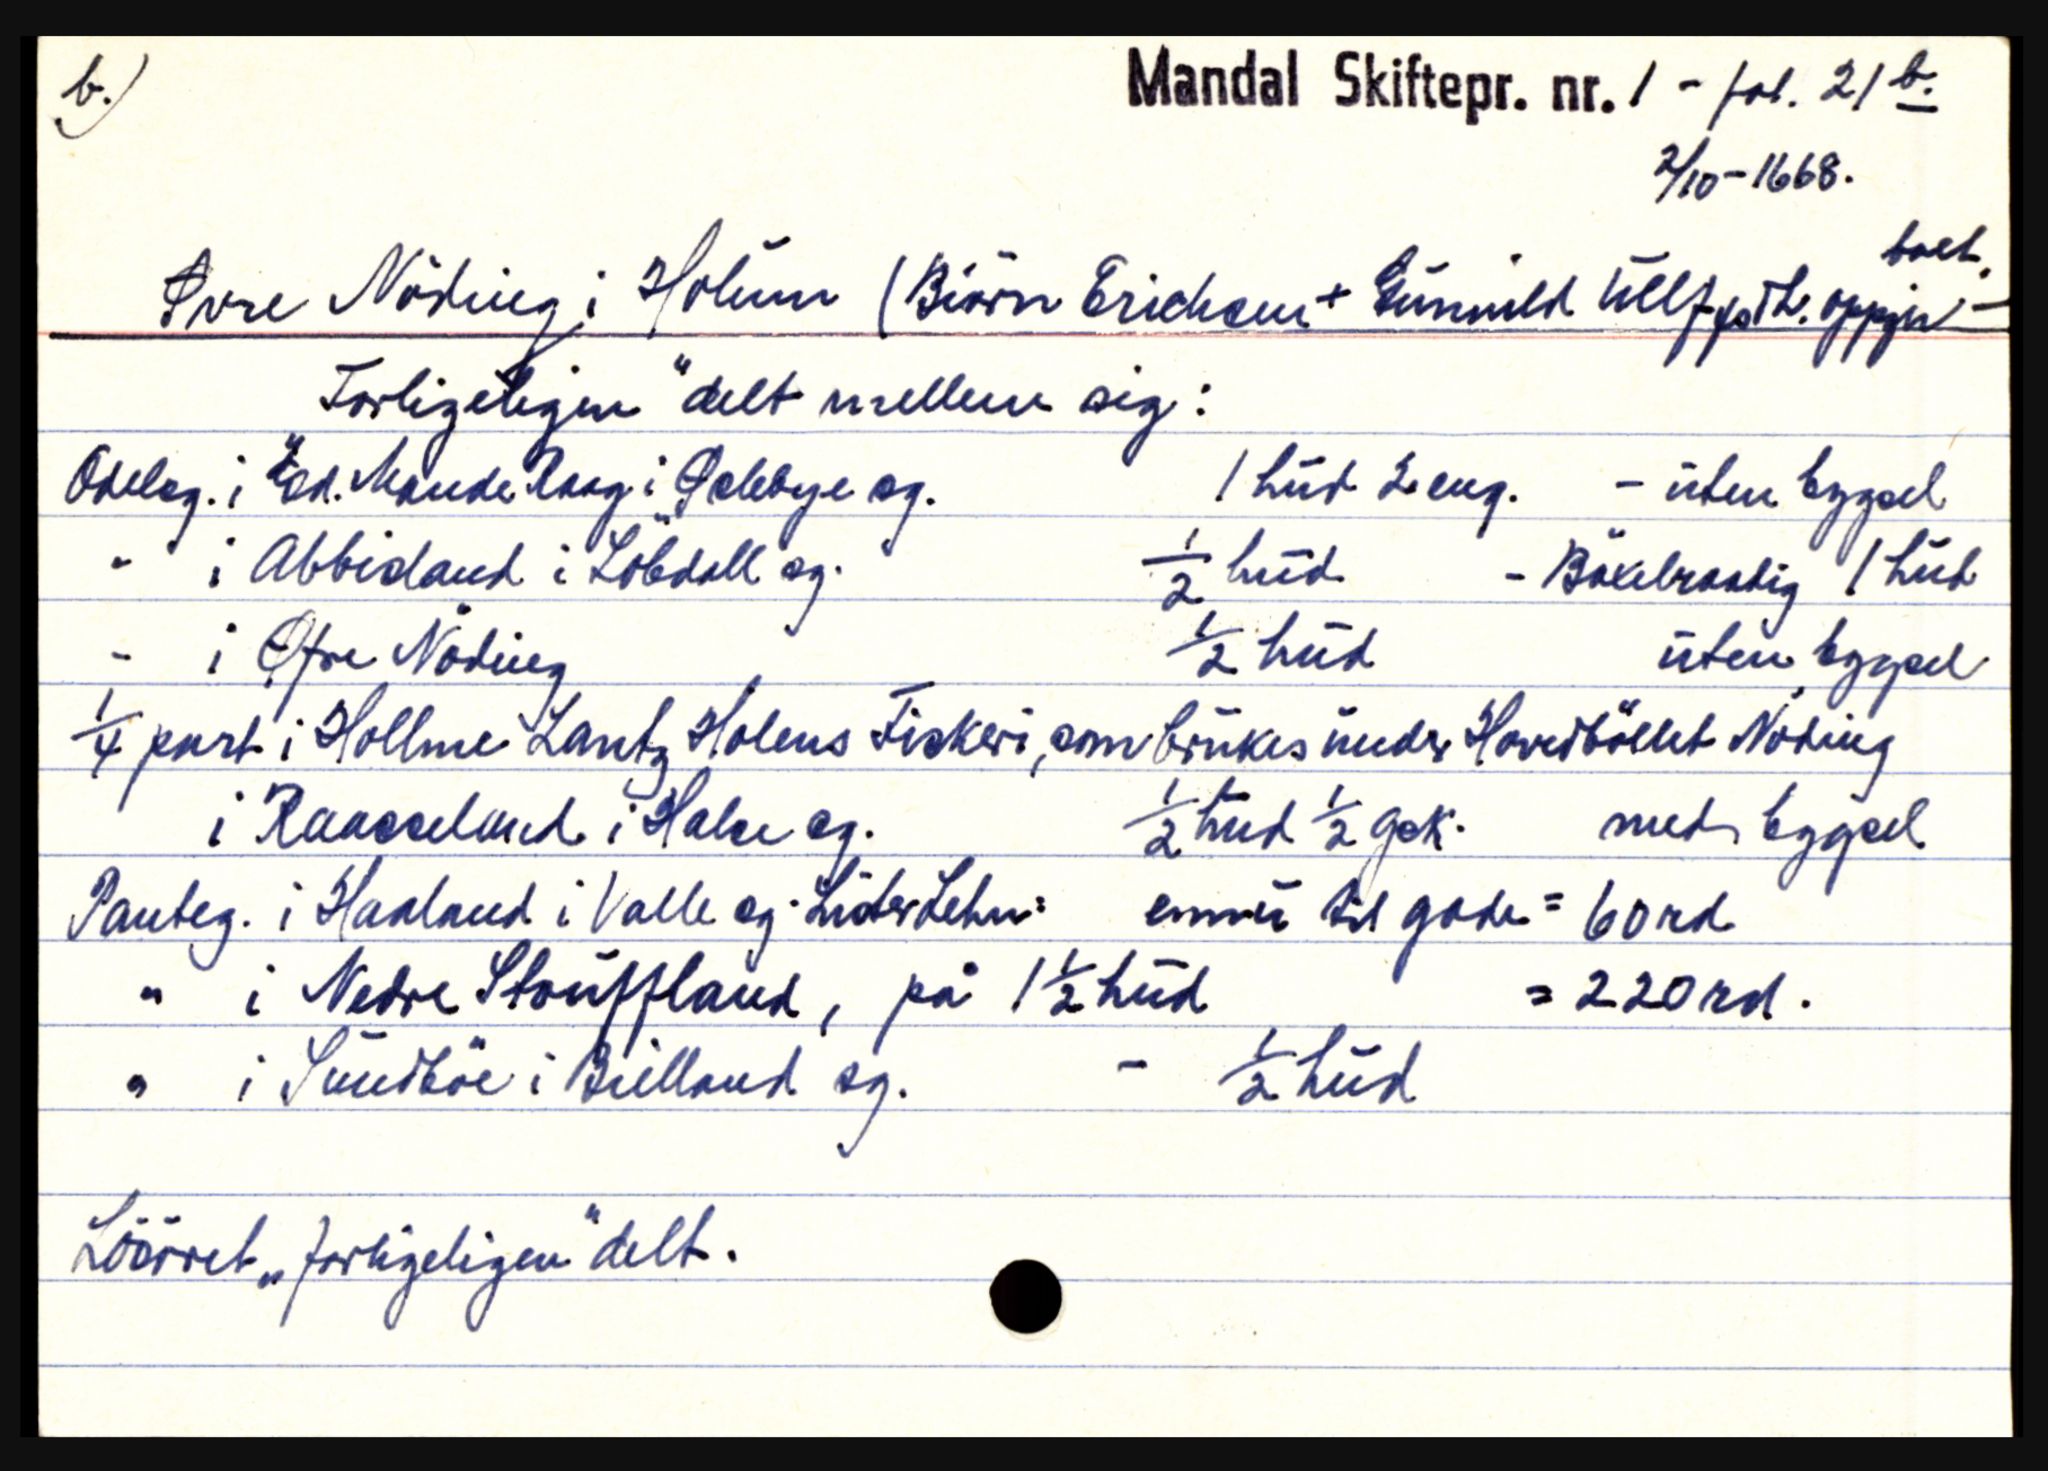 b.)
Mandal Skiftepr. nr. 1 - fol. 21 b.
2/10-1668.
boet.
Øvre Nöding i Holum (Biörn Erichsen + Gunnild Ullfsdt. oppgir -
Forligeligen" delt mellem sig:
Odelsg. i Mande Raag i Öslebye sg. 1 hud 2 eng. - uten bygsel
" i Abbisland i Löbdall sg. 1/2 hud - Böxelraadig 1 hud
- i Øfre Nöding 1/2 hud uten bygsel
1/4 part i Hollme Lantz Holens Fiskeri, som brukes under Hovedböllet Nöding
i Raasseland i Halse sg. 1/2 hud 1/2 gsk. med bygsel
Panteg. i Haaland i Valle sg. Lister Lehn: ennu til gode = 60 rd
" i Nedre Stouffland, på 1 1/2 hud = 220 rd.
" i Sundböe i Bielland sg. - 1/2 hud
Löösret „forligeligen" delt.